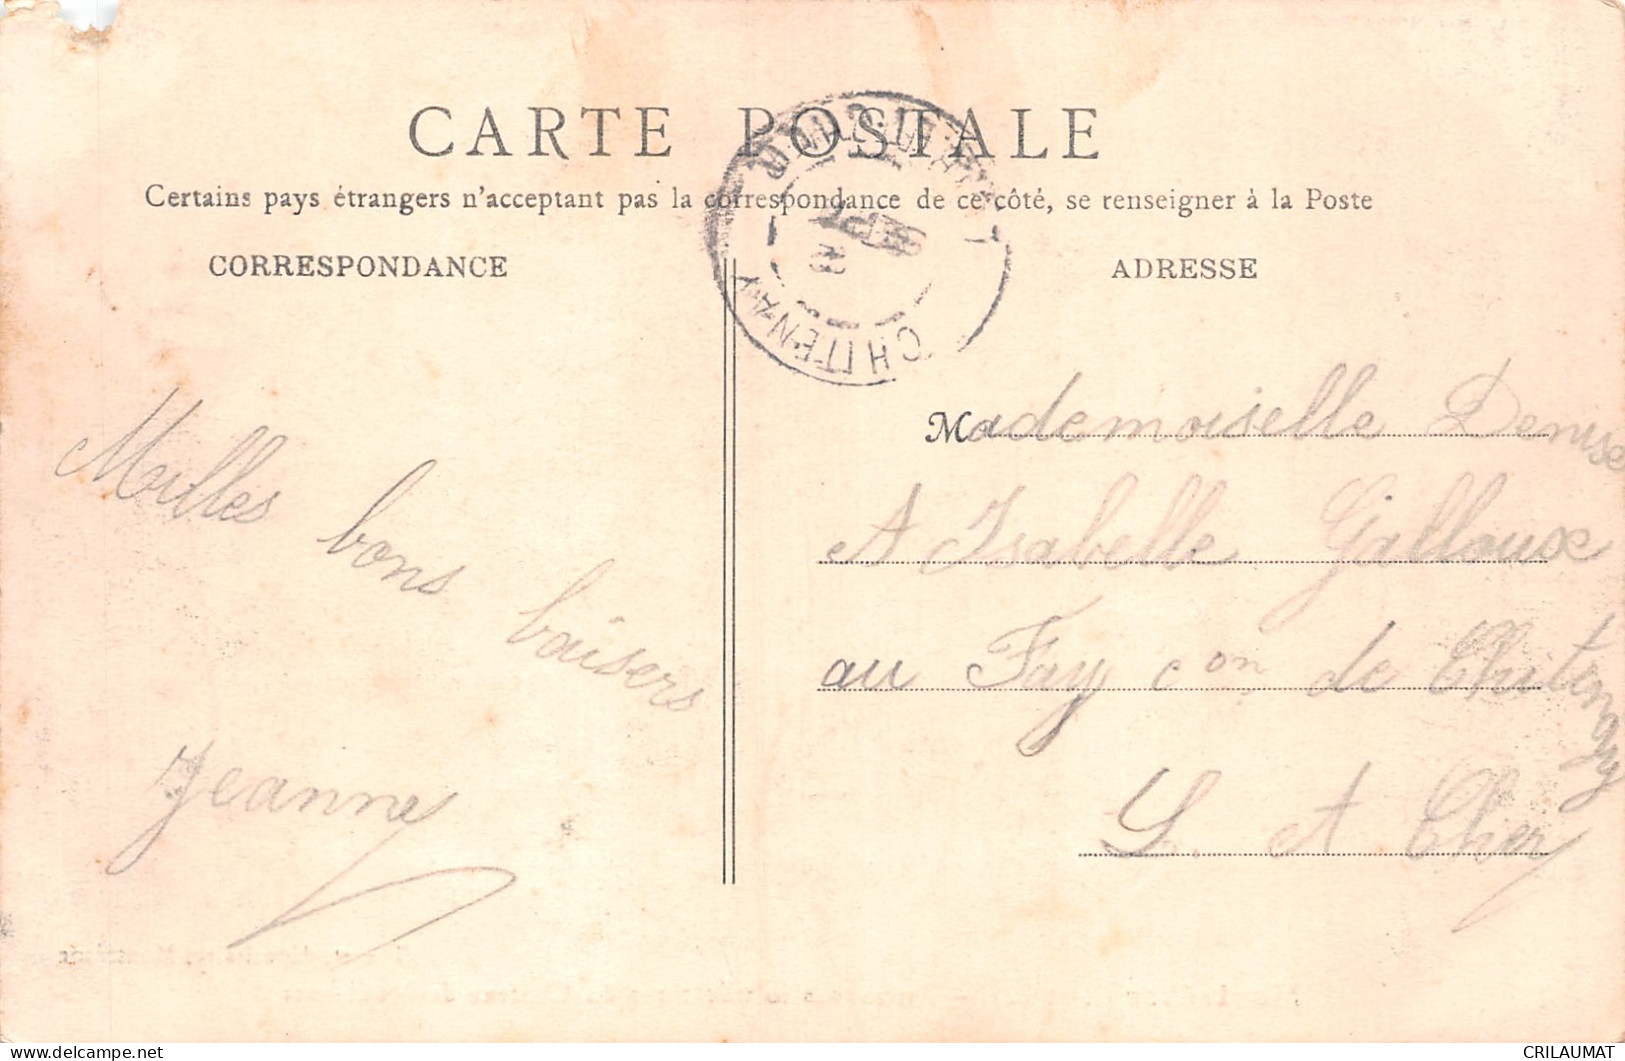 CARTE POSTALE
Certains pays étrangers n'acceptant pas la correspondance de ce côté, se renseigner à la Poste
CORRESPONDANCE
ADRESSE
CHITENAY
SEPT
Milles bons baisers
Jeanne
Mademoiselle Denise
A Isabelle Galloux
au Fay con de Chitenay
L. et Cher
CRILAUMAT